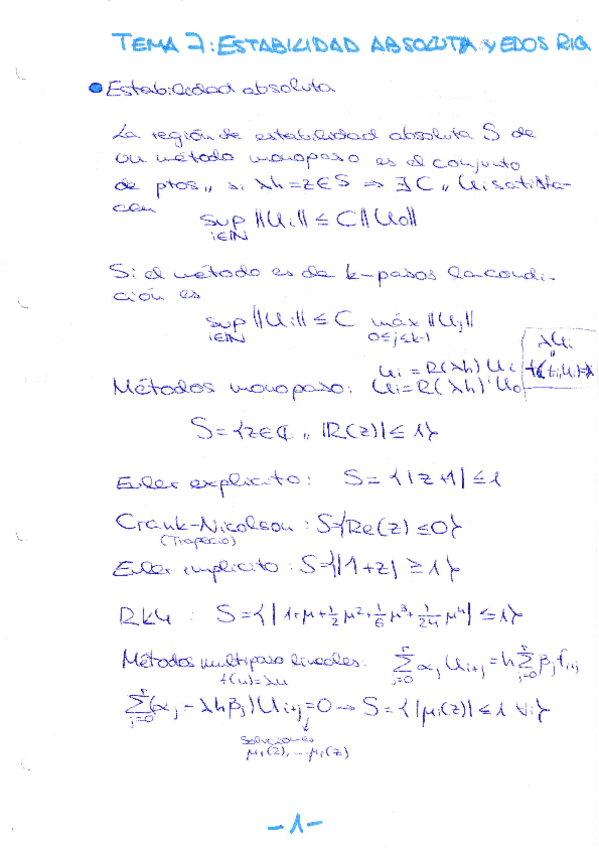 TEMA 7: ESTABILIDAD ABSOLUTA y EDOS RIG
• Estabilidad absoluta
La región de estabilidad absoluta S de
un método monopaso es el conjunto
de ptos ,, si λh = z ∈ S ⇒ ∃ C ,, Ui satisfa-
cen
sup ||Ui|| ≤ C ||U0||
i∈ℕ
Si el método es de k-pasos la condi-
ción es
sup ||Ui|| ≤ C máx ||Uj||
i∈ℕ 0≤j≤k-1
λUi
Ui = R(λh) Ui
Métodos monopaso: Ui = R(λh)^i U0
S = {z ∈ ℂ ,, |R(z)| ≤ 1}
Euler explícito: S = {|z+1| ≤ 1
Crank-Nicolson: S{Re(z) ≤ 0}
(Trapecio)
Euler implícito: S={|1+z| ≥ 1}
RK4 : S = {|1+μ+½μ²+⅙μ³+1/24 μ⁴| ≤ 1}
Métodos multipaso lineales: Σ_{j=0}^{r} αj Ui+j = h Σ_{j=0}^{r} βj fi+j
f(u)=λu
Σ_{j=0}^{r} (αj - λhβj) Ui+j = 0 → S = {|μi(z)| ≤ 1 ∀i}
Soluciones
μ1(z), ..., μr(z)
-1-